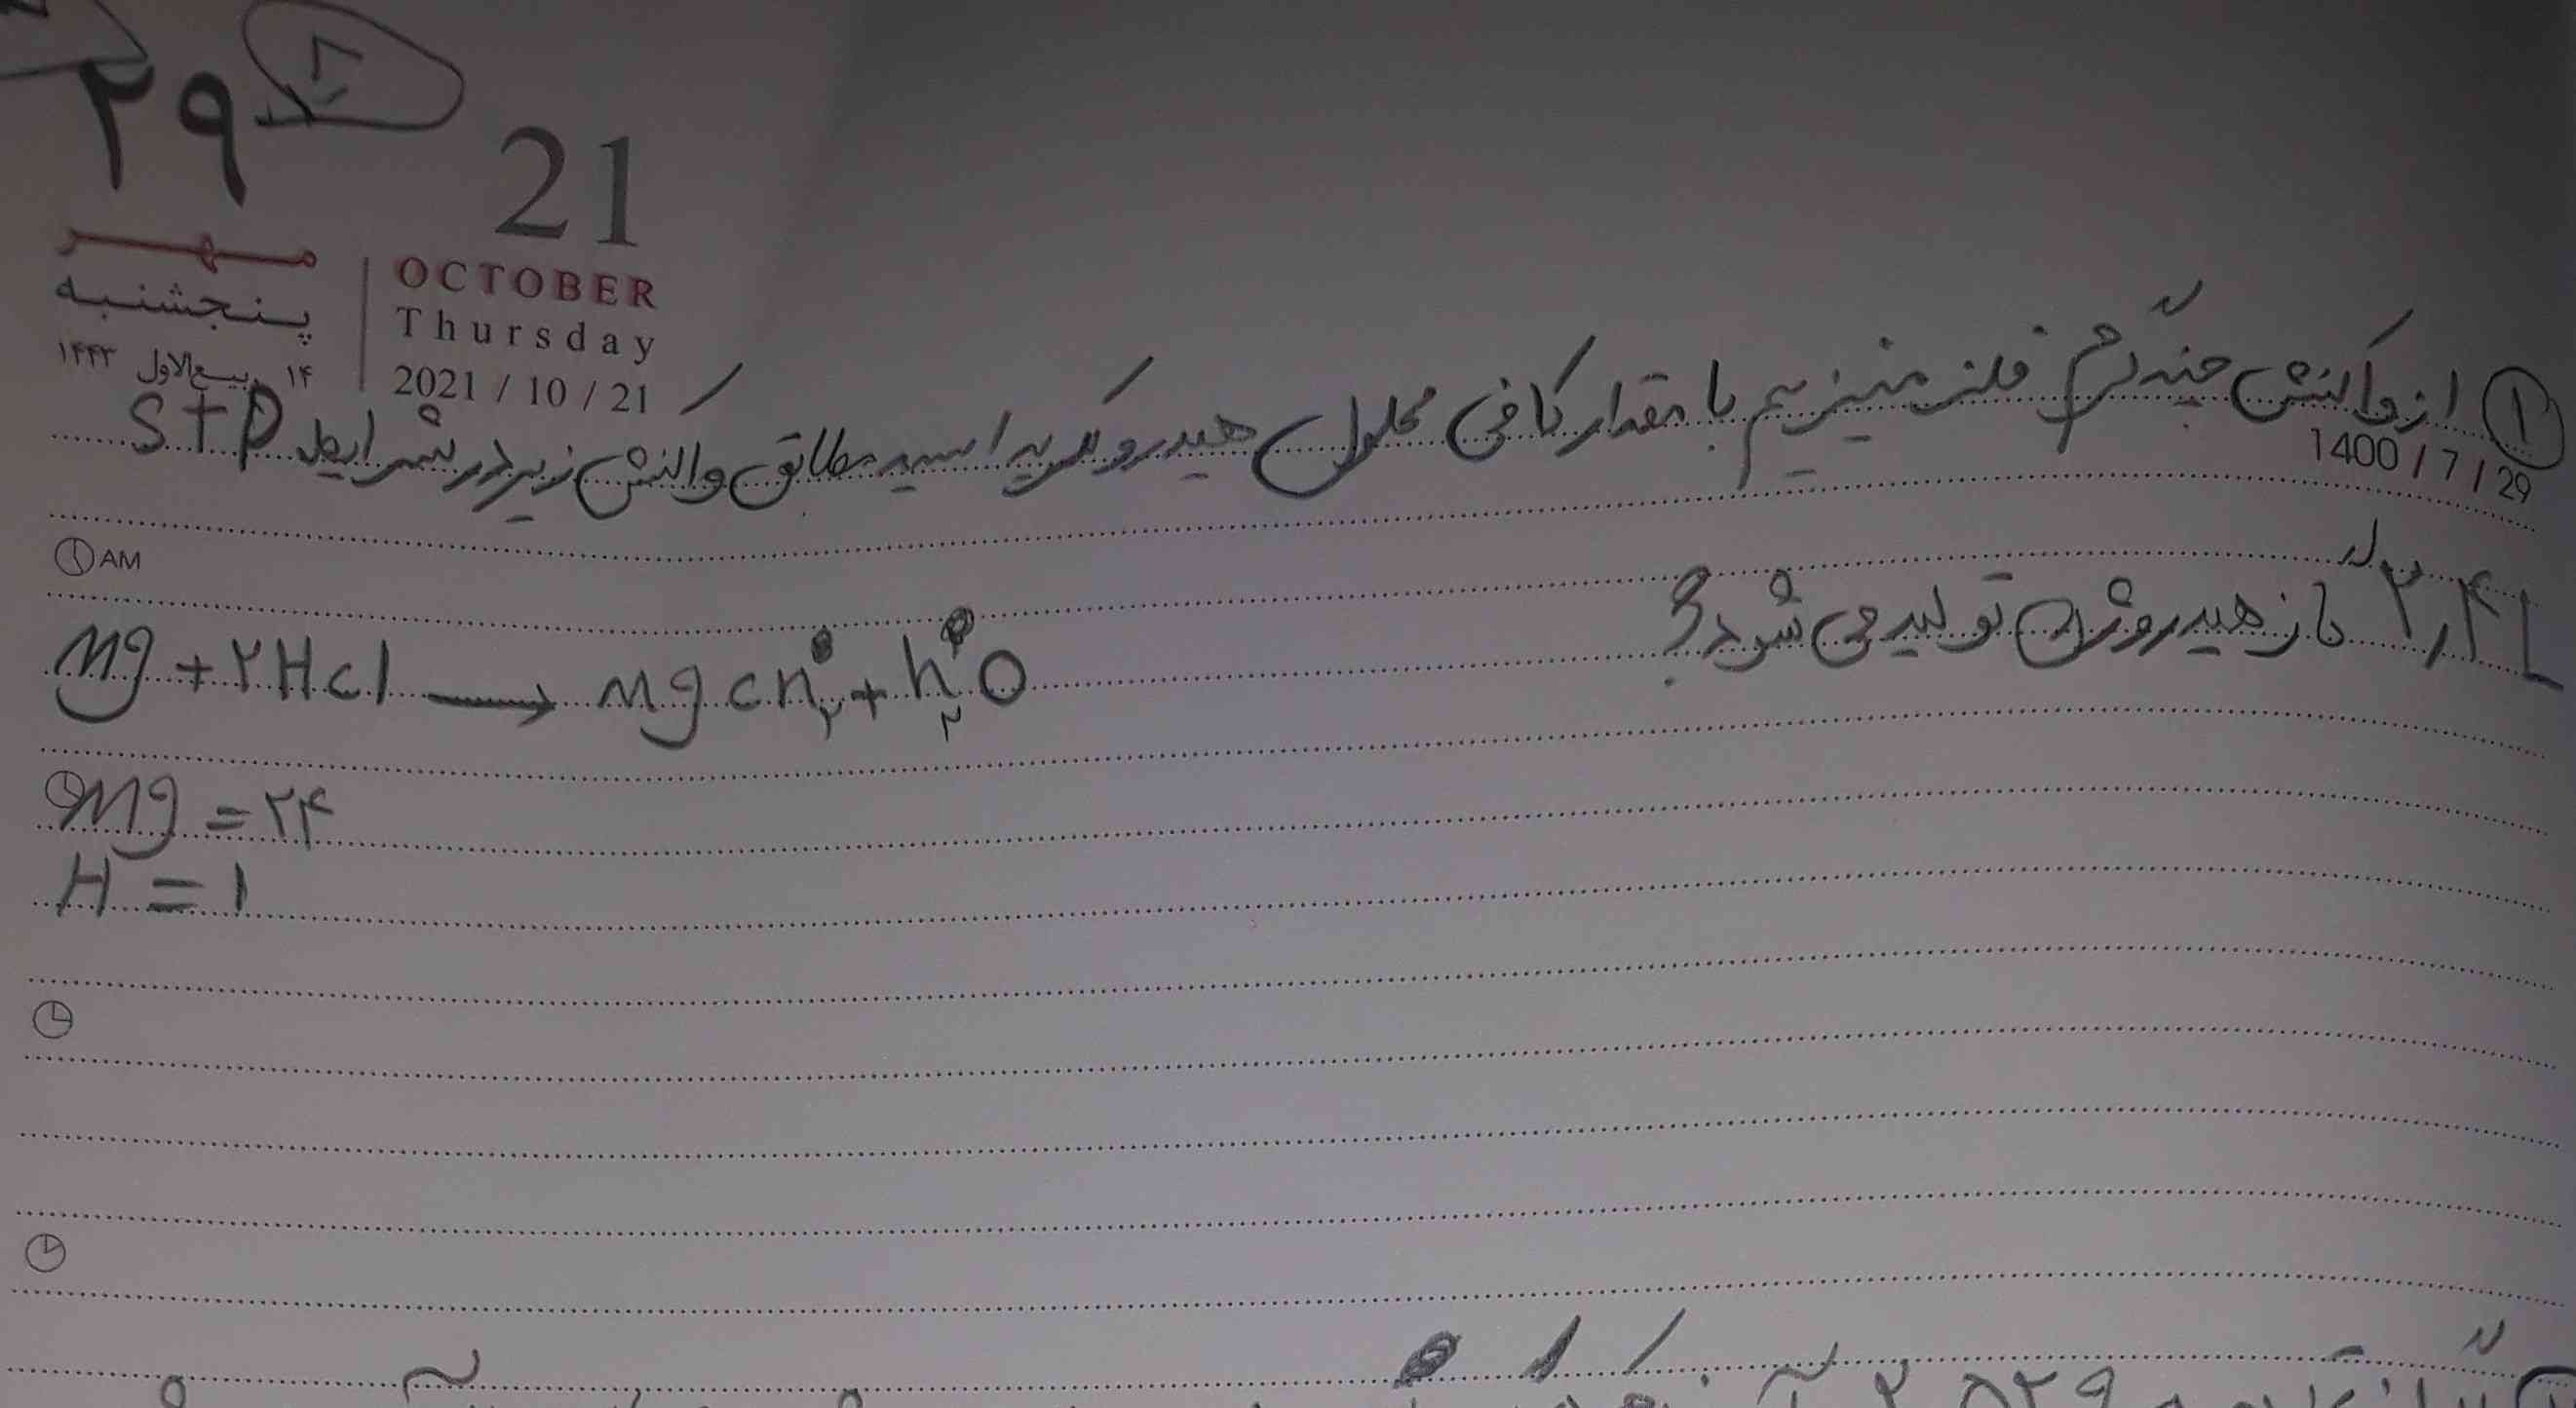 ۲۹
21
مهر
OCTOBER
پنجشنبه
Thursday
۱۴ ربیع‌الاول ۱۴۴۳
2021 / 10 / 21
1400 / 7 / 29
۱ از واکنش چند گرم فلز منیزیم با مقدار کافی محلول هیدروکلریداسید مطابق واکنش زیر در شرایط STP
۳,۴ L گاز هیدروژن تولید می شود؟
AM
Mg + ۲Hcl → Mg cn۲ + h۲O
Mg = ۲۴
H = ۱